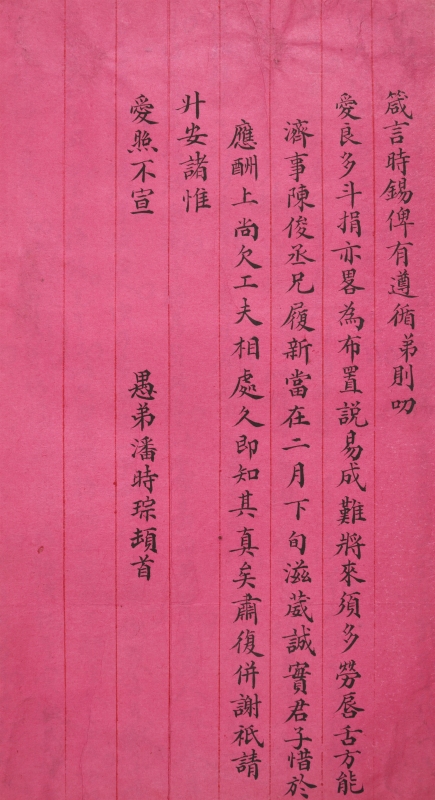 箴言時錫俾有遵循弟則叨
愛良多斗捐亦畧為布置説易成難將來須多勞唇舌方能
濟事陳俊丞兄履新當在二月下旬滋葳誠實君子惜於
應酬上尚欠工夫相處久即知其真矣肅復併謝祇請
升安諸惟
愛照不宣
愚弟潘時琮頓首